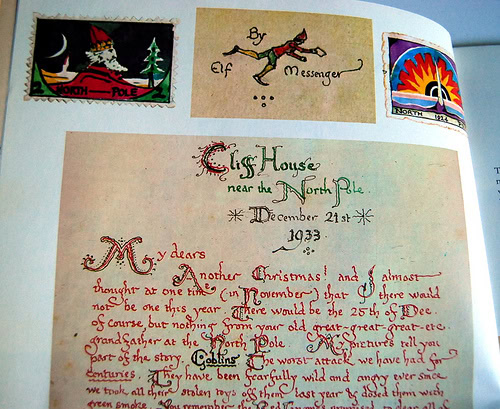 2 NORTH — POLE 2
By
Elf Messenger
NORTH
Cliff House
near the North Pole
* December 21st *
1933
My dears
Another Christmas! and I almost
thought at one time (in November) that there would
not be one this year. There would be the 25th of Dec.
of course, but nothing from your old great-great-great-etc.
grandfather at the North Pole. My pictures tell you
part of the story. Goblins. The worst attack we have had for
centuries. They have been fearfully wild and angry ever since
we took all their stolen toys off them last year & dosed them with
green smoke. You remember the Red Gnomes promised to